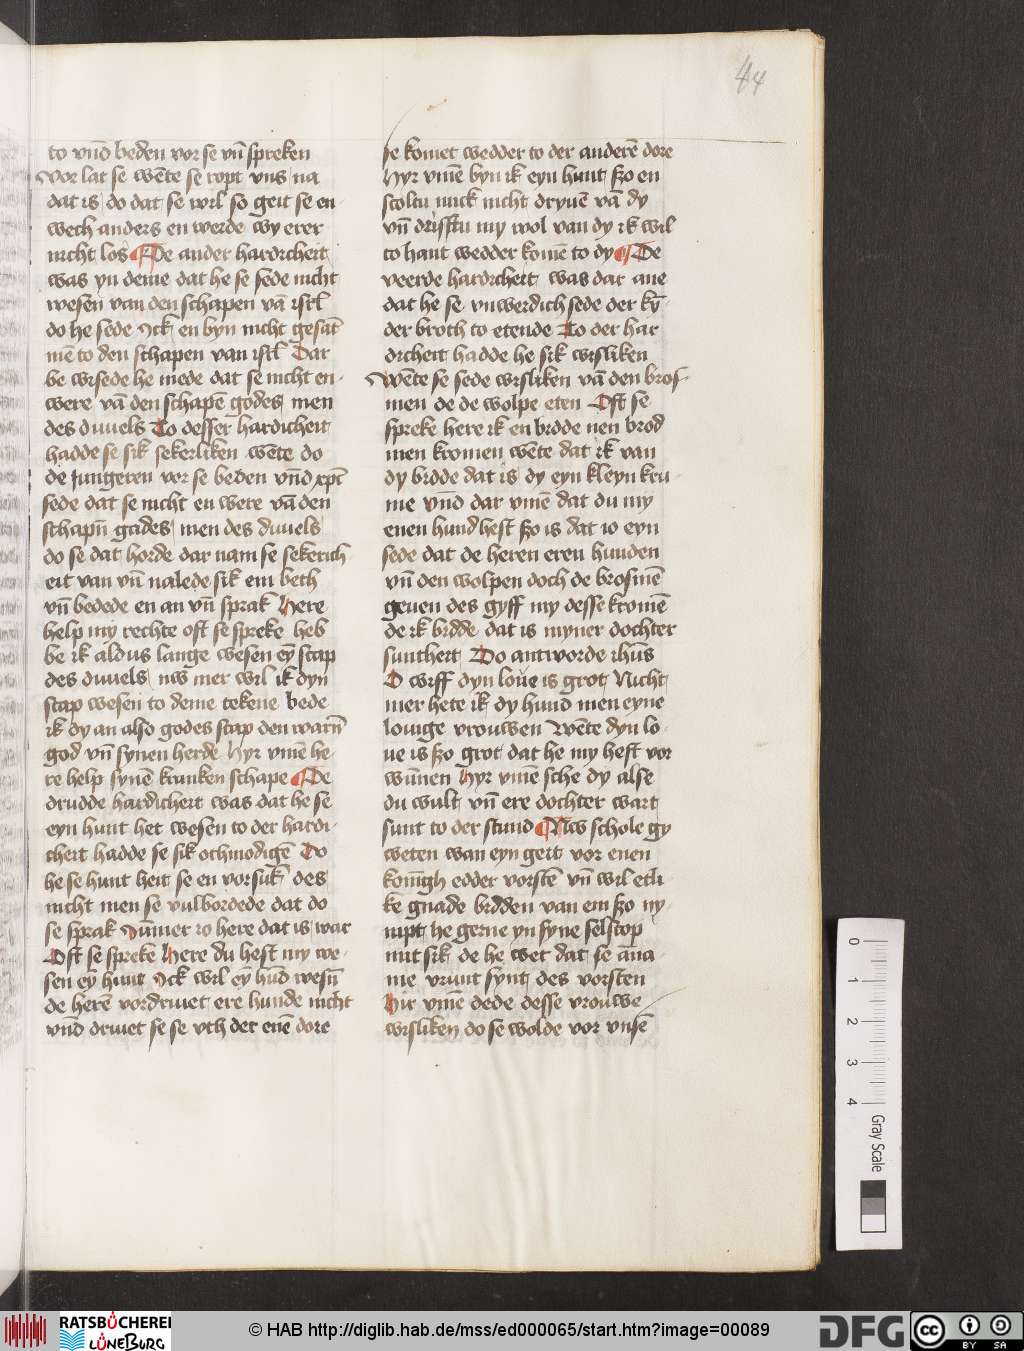 44
to vnd̄ beden vor se vn̄ spreken
vor lat se wēte se ropt vns na
dat is do dat se wil so geit se en
wech anders en werde wy erer
nicht los De ander hardicheit
was yn deme dat he se sede nicht
wesen van den schapen vā isrl̄
do he sede Ick en byn nicht gesāt
mē to den schapen van isrl̄ Dar
be wisede he mede dat se nicht en
were vā den schapē godes men
des duuels To desser hardicheit
hadde se sik sekerliken wēte do
de Jungeren vor se beden vnd̄ xpc̄
sede dat se nicht en were vā den
schapn̄ gades men des duuels
do se dat horde dar nam se sekerich
eit van vn̄ nalede sik em beth
vn̄ bedede en an vn̄ sprak Here
help my rechte oft se spreke heb
be ik aldus lange wesen ey̅ scap
des duuels nw mer wil ik dyn
scap wesen to deme tekene bede
ik dy an also godes scap den warn̄
god vn̄ synen herde Hyr vmē he
re help synē kranken schape De
drudde hardicheit was dat he se
eyn hunt het wesen to der hardi
cheit hadde se sik othmodigē Do
he se hunt heit se en vorsuk des
nicht men se vulbordede dat do
se sprak Ummer io here dat is war
Oft se spreke Here du hest my we
sen ey̅ hunt Ick wil ey̅ hūd wesn̄
de herē vordriuet ere hunde nicht
vnd̄ driuet se se vth der enē dore
se komet wedder to der anderē dore
Hyr vmē byn ik eyn hunt szo en
scoltu mick nicht dryuē vā dy
vn̄ drifftu my wol van dy ik wil
to hant wedder komē to dy De
veerde hardicheit was dat ane
dat he se vnwerdich sede der kī
der broth to etende To der har
dicheit hadde he sik wisliken
Wēte se sede wisliken vā den bros
men de de wolpe eten Oft se
spreke here ik en bidde nen brod
men kromen wēte dat ik van
dy bidde dat is dy eyn kleyn kru
me vnd̄ dar vmē dat du my
enen hund hest szo is dat io eyn
sede dat de heren eren hunden
vn̄ den wolpen doch de brosmē
geuen des gyff my desse kromē
de ik bidde dat is myner dochter
suntheit Do antworde ihūs
O wiff dyn loue is grot Nicht
mer hete ik dy hund men eyne
louige vrouwen Wēte dyn lo
ue is szo grot dat he my heft vor
wūnen Hyr vmē sche dy alse
du wult vn̄ ere dochter wart
sunt to der stund Nw schole gy
weten wan eyn geit vor enen
konīgh edder vorstē vn̄ wil etli
ke gnade bidden van em szo ny
mpt he gerne yn syne selscop
mit sik de he wet dat se āna
me vrunt synt des vorsten
Hir vmē dede desse vrouwe
wisliken do se wolde vor vnsē
0
1
2
3
4
Gray Scale
RATSBÜCHEREI
LÜNEBURG
© HAB http://diglib.hab.de/mss/ed000065/start.htm?image=00089
DFG
cc
BY SA